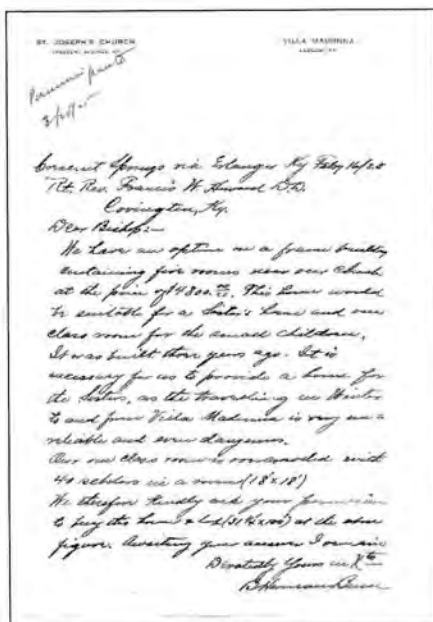 ST. JOSEPH'S CHURCH
CRESCENT SPRINGS, KY.
VILLA MADONNA
LUDLOW, KY.
Permission granted
Crescent Springs via Erlanger Ky Feby 16/25
Rt. Rev. Francis W. Howard D.D.
Covington, Ky.
Dear Bishop:—
We have an option on a frame building
containing five rooms near our Church
at the price of 4800. This house would
be suitable for a Sister's home and one
class room for the small children.
It was built three years ago. It is
necessary for us to provide a home for
the Sisters, as the travelling in Winter
to and from Villa Madonna is very un-
reliable and even dangerous.
Our one class room is overcrowded with
41 scholars in a room (18'x18')
We therefore kindly ask your permission
to buy the house & lot at the above
figure. Awaiting your answer I remain
Devotedly Yours in
B. Herman